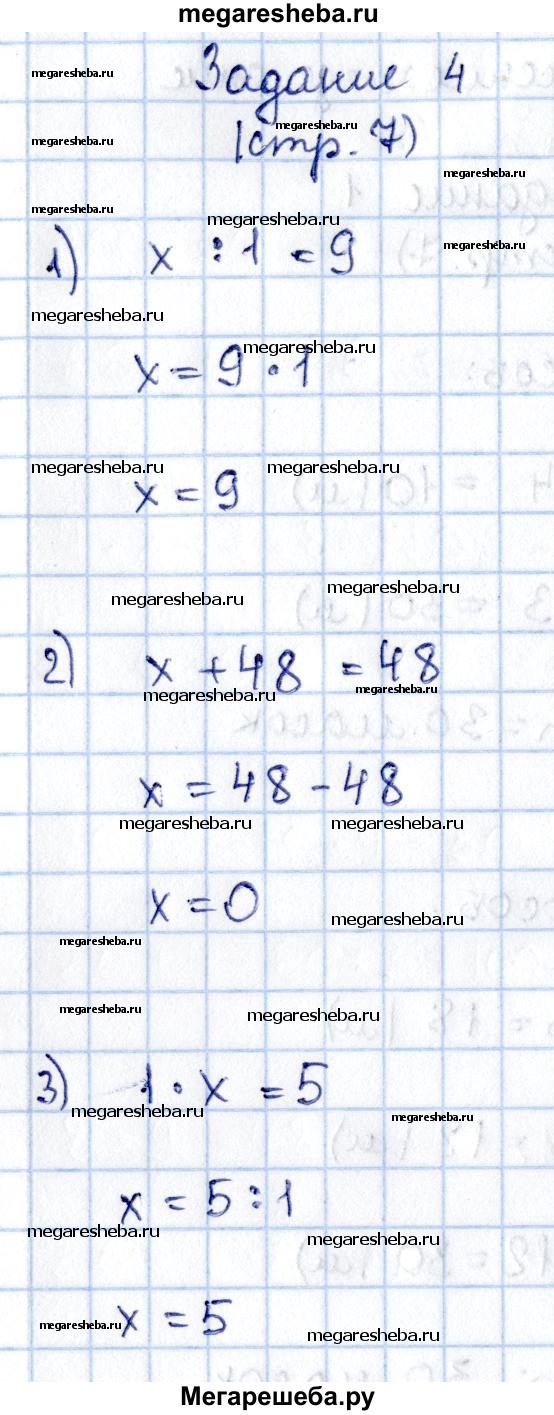 megaresheba.ru
megaresheba.ru
Задание 4
megaresheba.ru
megaresheba.ru
(стр. 7)
megaresheba.ru
megaresheba.ru
megaresheba.ru
megaresheba.ru
1) x : 1 = 9
megaresheba.ru
megaresheba.ru
x = 9 · 1
megaresheba.ru
megaresheba.ru
x = 9
megaresheba.ru
megaresheba.ru
2) x + 48 = 48
megaresheba.ru
megaresheba.ru
x = 48 - 48
megaresheba.ru
megaresheba.ru
x = 0
megaresheba.ru
megaresheba.ru
megaresheba.ru
megaresheba.ru
3) 1 · x = 5
megaresheba.ru
megaresheba.ru
x = 5 : 1
megaresheba.ru
megaresheba.ru
megaresheba.ru
x = 5
megaresheba.ru
Мегарешеба.ру